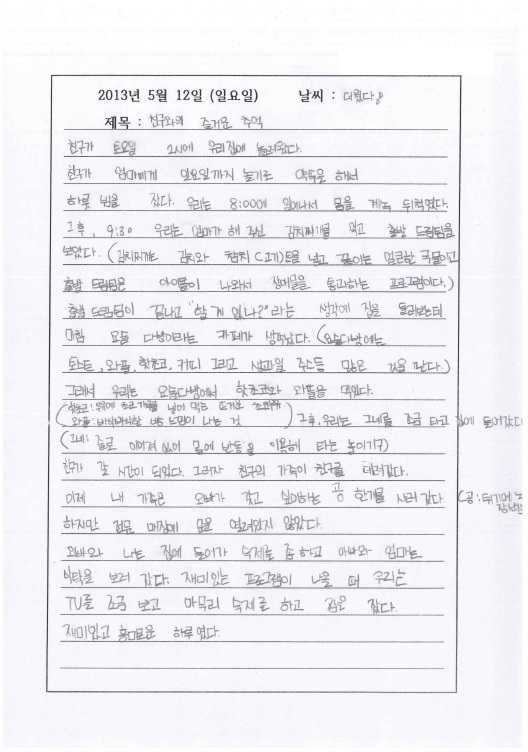 2013년 5월 12일 (일요일) 날씨 : 더웠다.
제목 : 친구와의 즐거운 추억
친구가 토요일 2시에 우리집에 놀러왔다.
친구가 엄마에게 일요일까지 놀기로 약속을 해서
하룻 밤을 잤다. 우리는 8:00에 일어나서 몸을 계속 뒤척였다.
그후, 9:30 우리는 엄마가 해 주신 김치찌개를 먹고 출발 드림팀을
보았다. (김치찌개는 김치와 참치(고기)등을 넣고 끓이는 얼큰한 국물이고
출발 드림팀은 아이돌이 나와서 장애물을 통과하는 프로그램이다.)
출발 드림팀이 끝나고 "할 게 없나?"라는 생각에 집을 둘러보는데
마침 오늘 다방이라는 카페가 생각났다. (오늘다방에는
토스트, 와플, 핫초코, 커피 그리고 생과일 주스등 많은 것을 판다.)
그래서 우리는 오늘다방에서 핫초코와 와플을 먹었다.
(핫초코 : 위에 초코가루를 넣어 먹는 뜨거운 초코우유
와플 : 바삭바삭한 빵 나는 것) 그후, 우리는 그네를 조금 타고 집에 들어갔다
(그네 : 줄로 이어져 있어 몸에 반동을 이용해 타는 놀이기구)
친구가 갈 시간이 되었다. 그러자 친구의 가족이 친구를 데려갔다.
이제 내 가족은 오빠가 갖고 싶어하는 공 한개를 사러 갔다. (공 : 튀기며 노
장난
하지만 전문 매장에 문을 열려있지 않았다.
오빠와 나는 집에 들어가 숙제를 좀 하고 아빠와 엄마는
식탁을 보러 갔다. 재미있는 프로그램이 나올 때 우리는
TV를 조금 보고 마무리 숙제를 하고 잠을 잤다.
재미있고 흥미로운 하루였다.